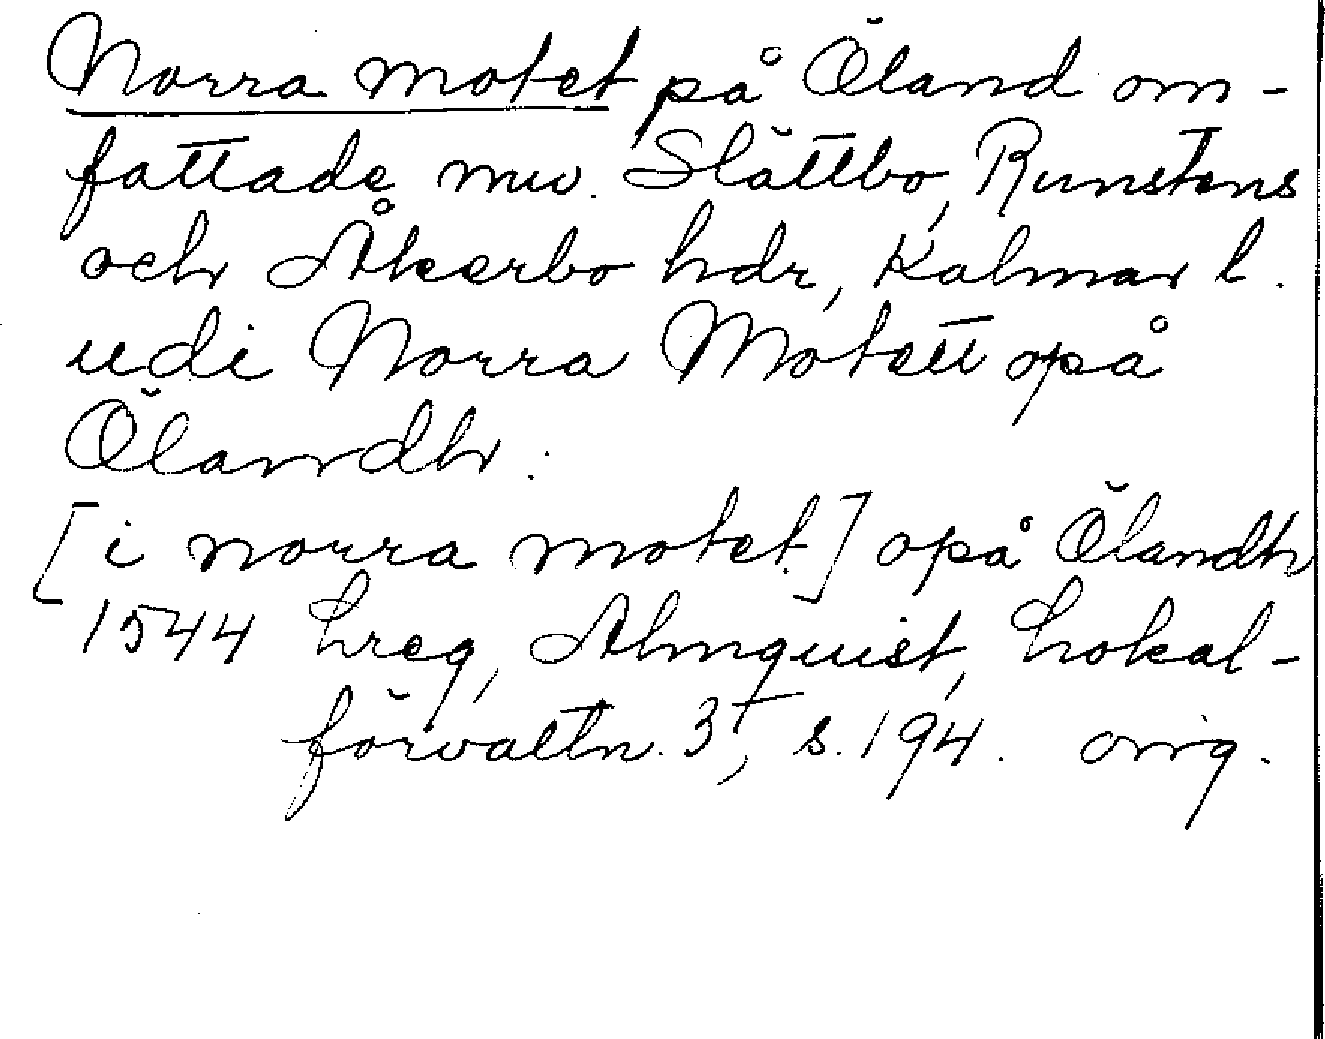 Norra motet på Öland om-
fattade nuv. Slättbo, Runstens
och Åkerbo hdr, Kalmar l.
udi Norra Motett opå
Ölandh.
[i norra motet.] opå Ölandh
1544 hreg, Almquist, Lokal-
förvaltn. 3, s. 194. orig.